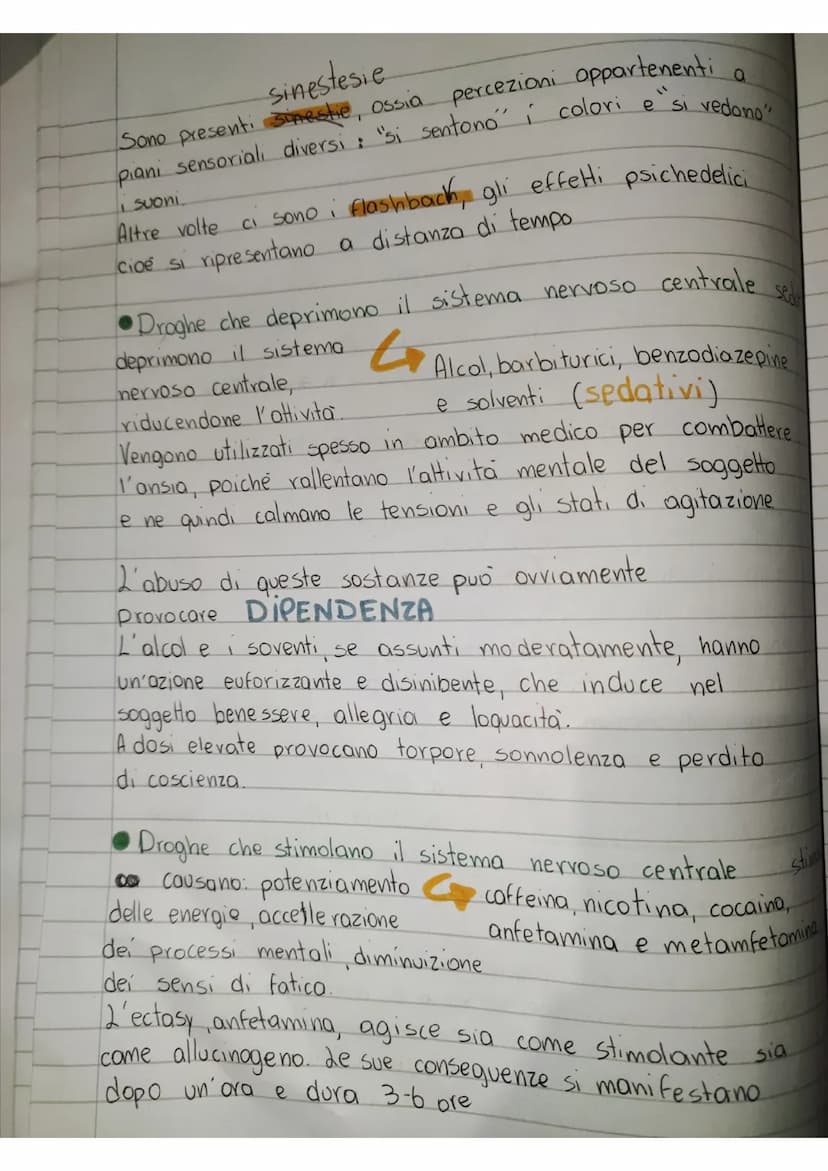 sinestesie
Sono presenti sinestie, ossia percezioni appartenenti a
piani sensoriali diversi : "si sentono" i colori e "si vedono"
i suoni.
Altre volte ci sono i flashback, gli effetti psichedelici
cioé si ripresentano a distanza di tempo
• Droghe che deprimono il sistema nervoso centrale
deprimono il sistema
nervoso centrale,
riducendone l'attività.
Alcol, barbiturici, benzodiazepine
e solventi (sedativi)
Vengono utilizzati spesso in ambito medico per combattere
l'ansia, poiché rallentano l'attività mentale del soggetto
e ne quindi calmano le tensioni e gli stati di agitazione
L'abuso di queste sostanze può ovviamente
provocare DIPENDENZA
L'alcol e i soventi, se assunti moderatamente, hanno
un'azione euforizzante e disinibente, che induce nel
soggetto benessere, allegria e loquacità.
A dosi elevate provocano torpore, sonnolenza e perdita
di coscienza.
• Droghe che stimolano il sistema nervoso centrale
causano: potenziamento
delle energie, accellerazione
dei processi mentali, diminuizione
dei sensi di fatica.
caffeina, nicotina, cocaina,
anfetamina e metamfetamina
L'ectasy, anfetamina, agisce sia come stimolante sia
come allucinogeno. Le sue conseguenze si manifestano
dopo un'ora e dura 3-6 ore